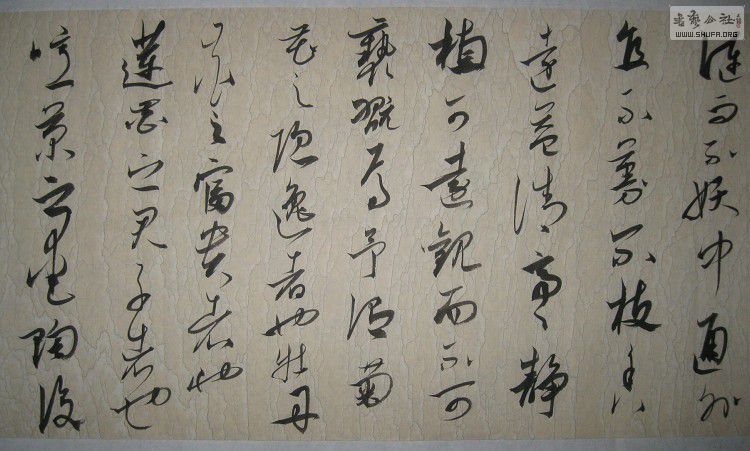 書藝公社
WWW.SHUFA.ORG
漣而不妖中通外
直不蔓不枝香
遠益清亭々静
植可遠觀而不可
褻翫焉予謂菊
花之隱逸者也牡丹
花之富貴者也
蓮花之君子者也
噫菊之愛陶後